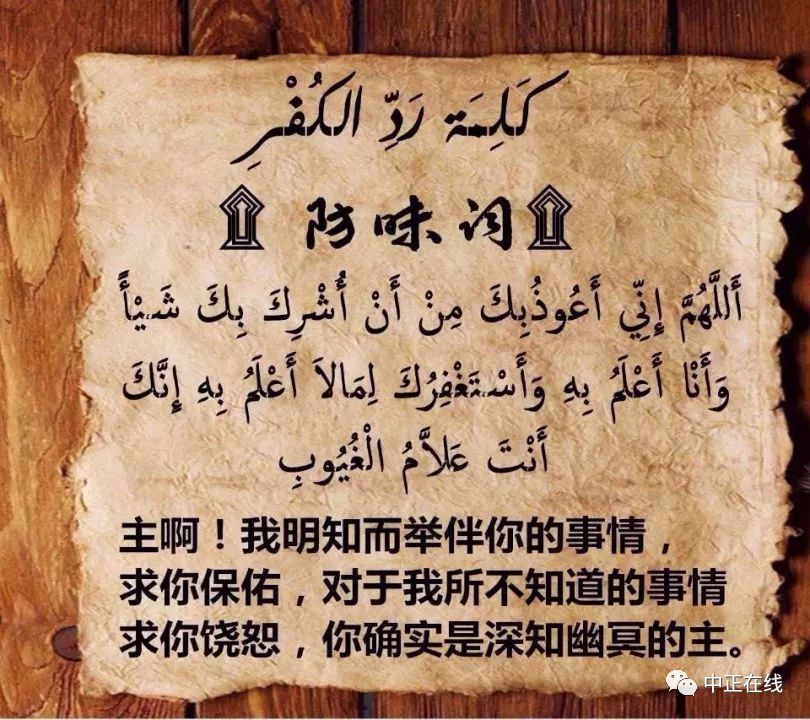 كَلِمَة رَدِّ الكُفْرِ
۩ 防昧词 ۩
أَللَّهُمَّ إِنِّي أَعُوذُبِكَ مِنْ أَنْ أُشْرِكَ بِكَ شَيْأً
وَأَنْا أَعْلَمُ بِهِ وَأَسْتَغْفِرُكَ لِمَالاَ أَعْلَمُ بِهِ إِنَّكَ
أَنْتَ عَلاَّمُ الْغُيُوبِ
主啊！我明知而举伴你的事情，
求你保佑，对于我所不知道的事情
求你饶恕，你确实是深知幽冥的主。
中正在线